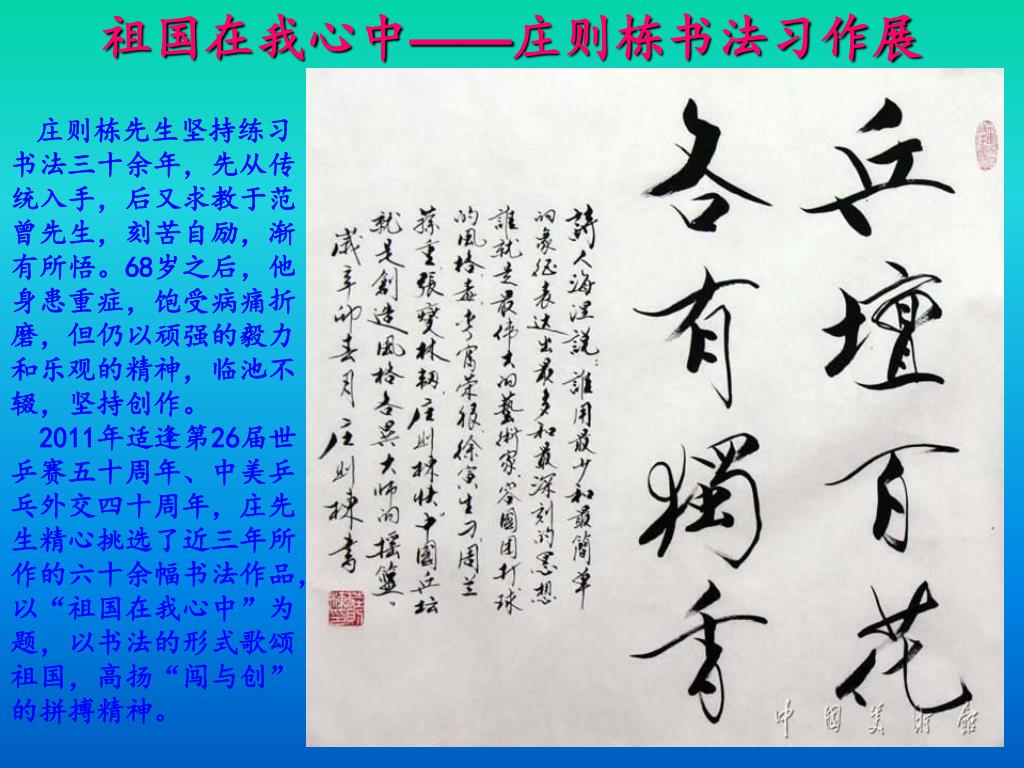 祖国在我心中——庄则栋书法习作展
庄则栋先生坚持练习
书法三十余年，先从传
统入手，后又求教于范
曾先生，刻苦自励，渐
有所悟。68岁之后，他
身患重症，饱受病痛折
磨，但仍以顽强的毅力
和乐观的精神，临池不
辍，坚持创作。
2011年适逢第26届世
乒赛五十周年、中美乒
乓外交四十周年，庄先
生精心挑选了近三年所
作的六十余幅书法作品，
以“祖国在我心中”为
题，以书法的形式歌颂
祖国，高扬“闯与创”
的拼搏精神。
乒壇百花
各有獨香
詩人海涅說：誰用最少和最簡單
的象征表达出最多和最深刻的思想
誰就是最伟大的藝術家。容國团打球
的風格毒、李富荣狠、徐寅生刁、周兰
蓀重、張燮林韧、庄则棟快。中國乒坛
就是創造風格各異大师的摇籃、
歲辛卯春月庄则棟書
中國美術館